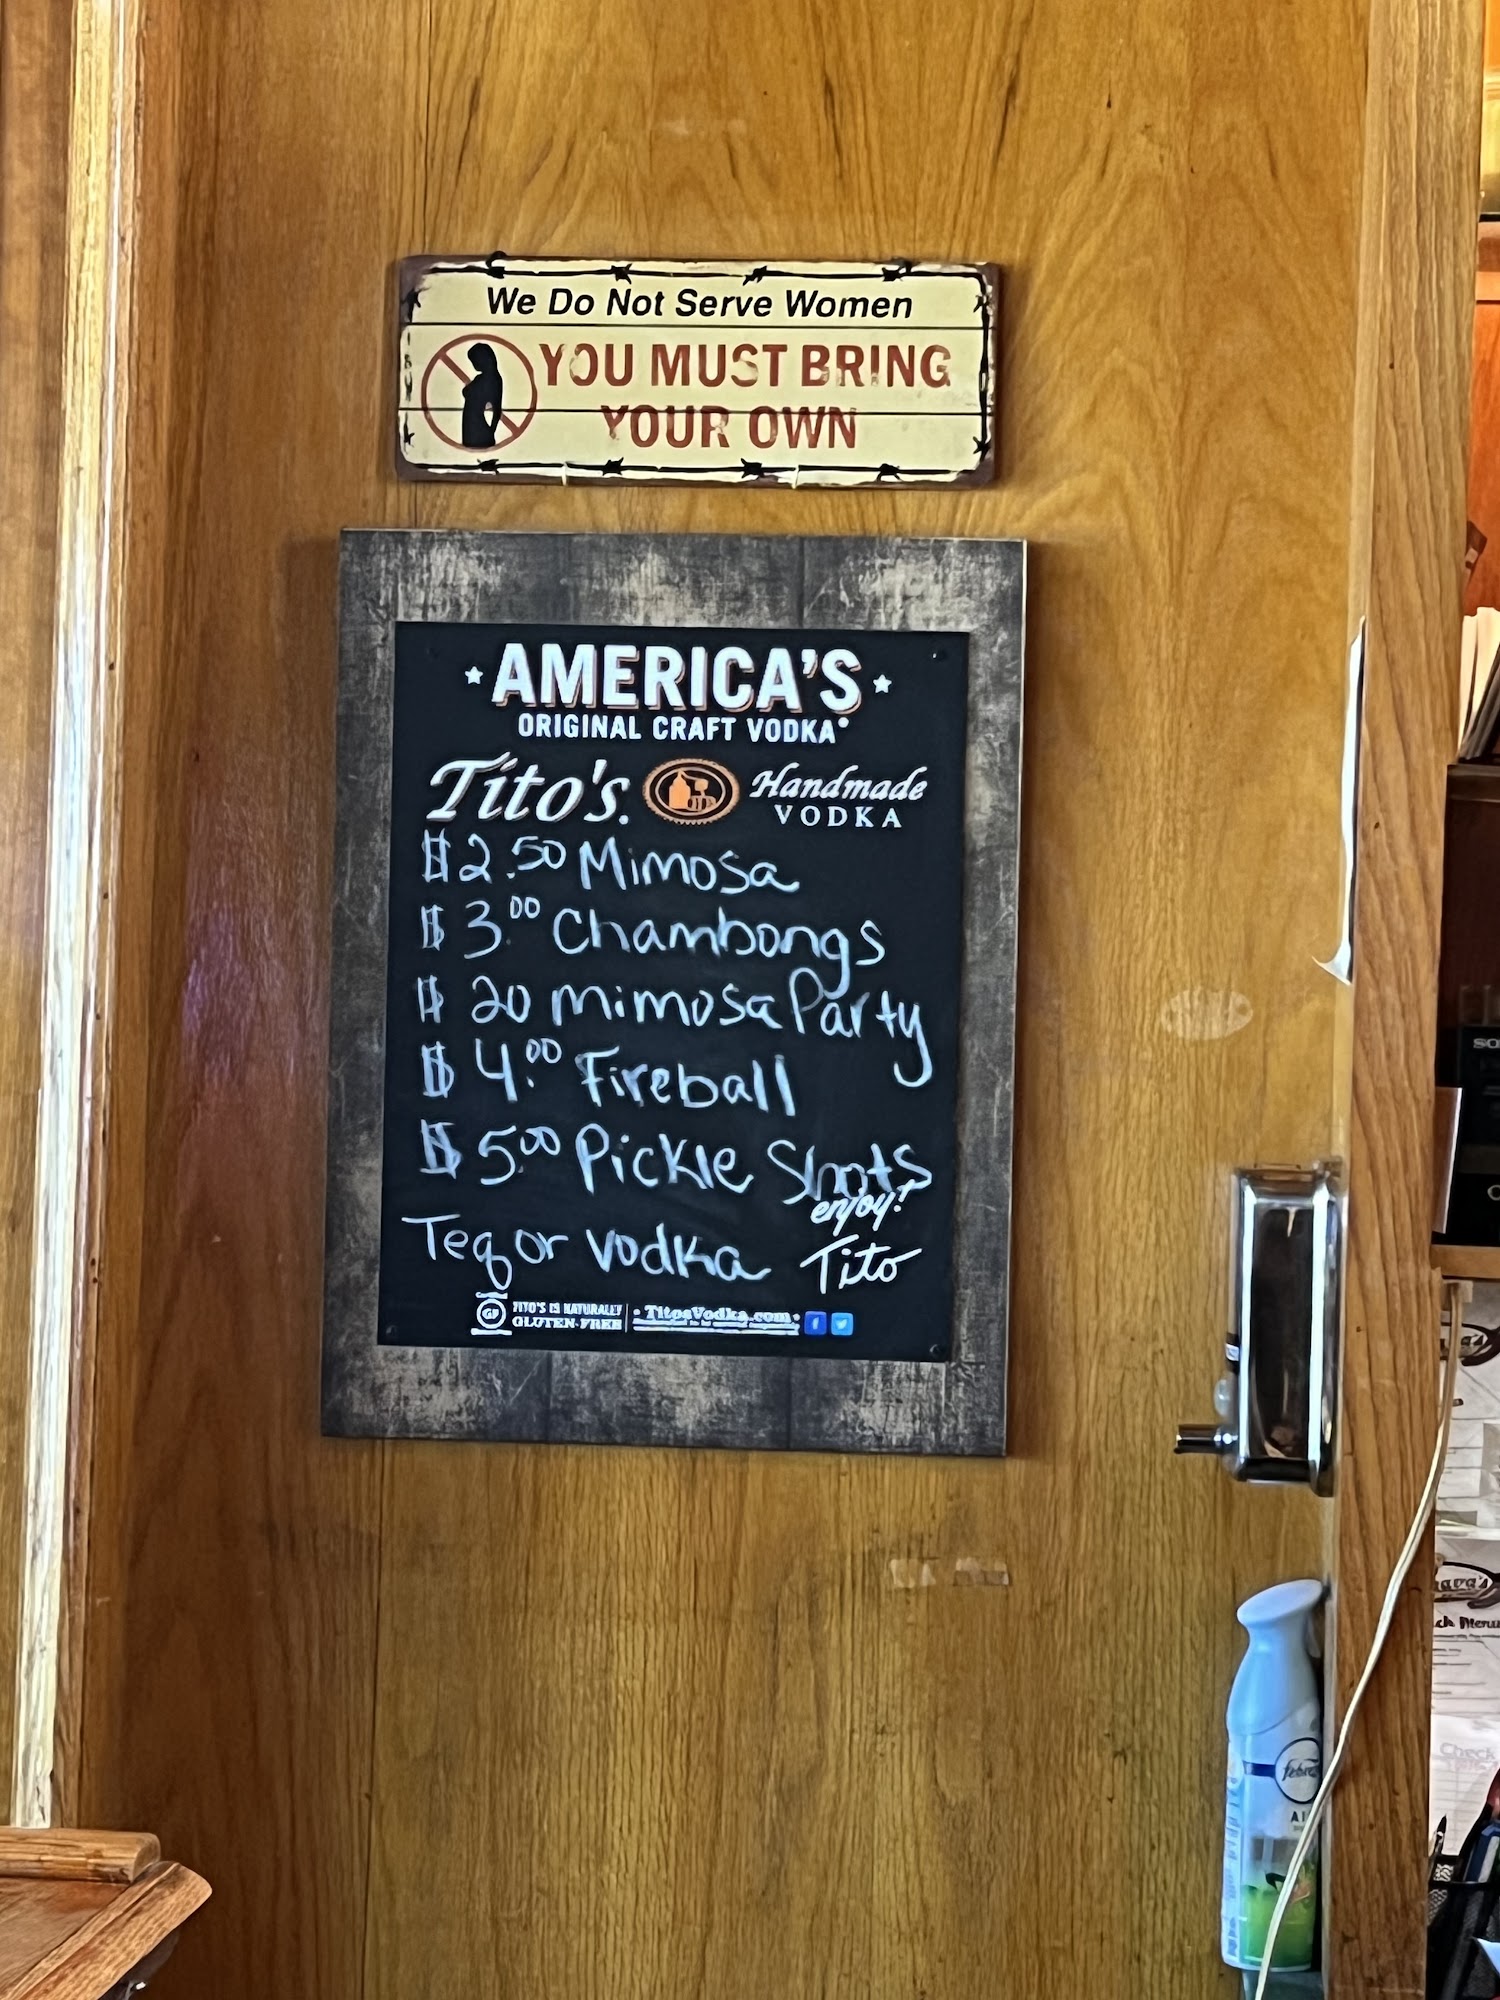 We Do Not Serve Women
YOU MUST BRING
YOUR OWN
AMERICA'S
ORIGINAL CRAFT VODKA®
Tito's. Handmade
VODKA
$2.50 Mimosa
$3.00 Chambongs
$20 mimosa Party
$4.00 Fireball
$5.00 Pickle Shots
enjoy!
Teq or vodka Tito
GF TITO'S IS NATURALLY
GLUTEN-FREE
TitosVodka.com
SO
febre
AI
Check